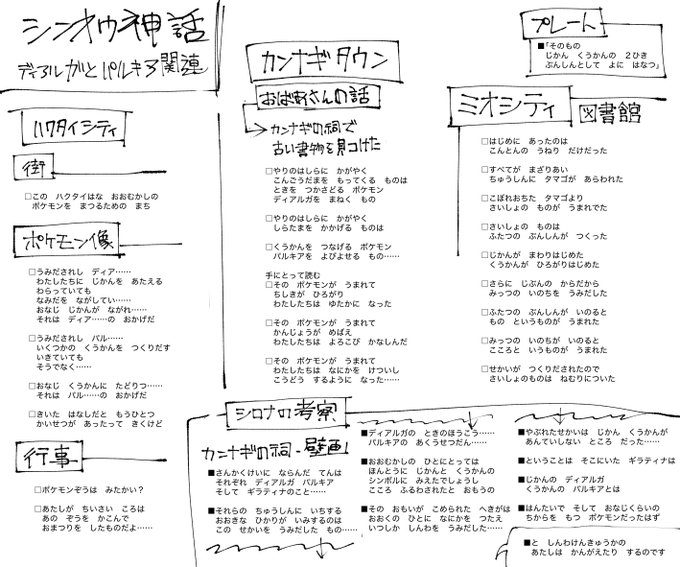 シンオウ神話
ディアルガとパルキア関連
ハクタイシティ
街
□この ハクタイはな おおむかしの
ポケモンを まつるための まち
ポケモン像
□うみだされし ディア……
わたしたちに じかんを あたえる
わらっていても
なみだを ながしてい……
おなじ じかんが ながれ……
それは ディア……の おかげだ
□うみだされし パル……
いくつかの くうかんを つくりだす
いきていても
そうでなく……
□おなじ くうかんに たどりつ……
それは パル……の おかげだ
□きいた はなしだと もうひとつ
かいせつが あったって きくけど
行事
□ポケモンぞうは みたかい？
□あたしが ちいさい ころは
あの ぞうを かこんで
おまつりを したものだよ……
カンナギタウン
おばあさんの話
カンナギの祠で
古い書物を見つけた
□やりのはしらに かがやく
こんごうだまを もってくる ものは
ときを つかさどる ポケモン
ディアルガを まねく もの
□やりのはしらに かがやく
しらたまを かかげる ものは
□くうかんを つなげる ポケモン
パルキアを よびよせる もの……
手にとって読む
□その ポケモンが うまれて
ちしきが ひろがり
わたしたちは ゆたかに なった
□その ポケモンが うまれて
かんじょうが めばえ
わたしたちは よろこび かなしんだ
□その ポケモンが うまれて
わたしたちは なにかを けついし
こうどう するように なった……
プレート
■「そのもの
じかん くうかんの ２ひき
ぶんしんとして よに はなつ」
ミオシティ
図書館
□はじめに あったのは
こんとんの うねり だけだった
□すべてが まざりあい
ちゅうしんに タマゴが あらわれた
□こぼれおちた タマゴより
さいしょの ものが うまれでた
□さいしょの ものは
ふたつの ぶんしんが つくった
□じかんが まわりはじめた
くうかんが ひろがりはじめた
□さらに じぶんの からだから
みっつの いのちを うみだした
□ふたつの ぶんしんが いのると
もの というものが うまれた
□みっつの いのちが いのると
こころと いうものが うまれた
□せかいが つくりだされたので
さいしょのものは ねむりについた
シロナの考察
カンナギの祠-壁画
■さんかくけいに ならんだ てんは
それぞれ ディアルガ パルキア
そして ギラティナのこと……
■それらの ちゅうしんに いちする
おおきな ひかりが いみするのは
この せかいを うみだした もの……
■ディアルガの ときのほうこう……
パルキアの あくうせつだん……
■おおむかしの ひとにとっては
ほんとうに じかんと くうかんの
シンボルに みえたでしょうし
こころ ふるわされたと おもうの
■その おもいが こめられた へきがは
おおくの ひとに なにかを つたえ
いつしか しんわを うみだした……
■やぶれたせかいは じかん くうかんが
あんていしない ところ だった……
■ということは そこにいた ギラティナは
■じかんの ディアルガ
くうかんの パルキアとは
■はんたいで そして おなじくらいの
ちからを もつ ポケモンだったはず
■と しんわけんきゅうかの
あたしは かんがえたり するのです